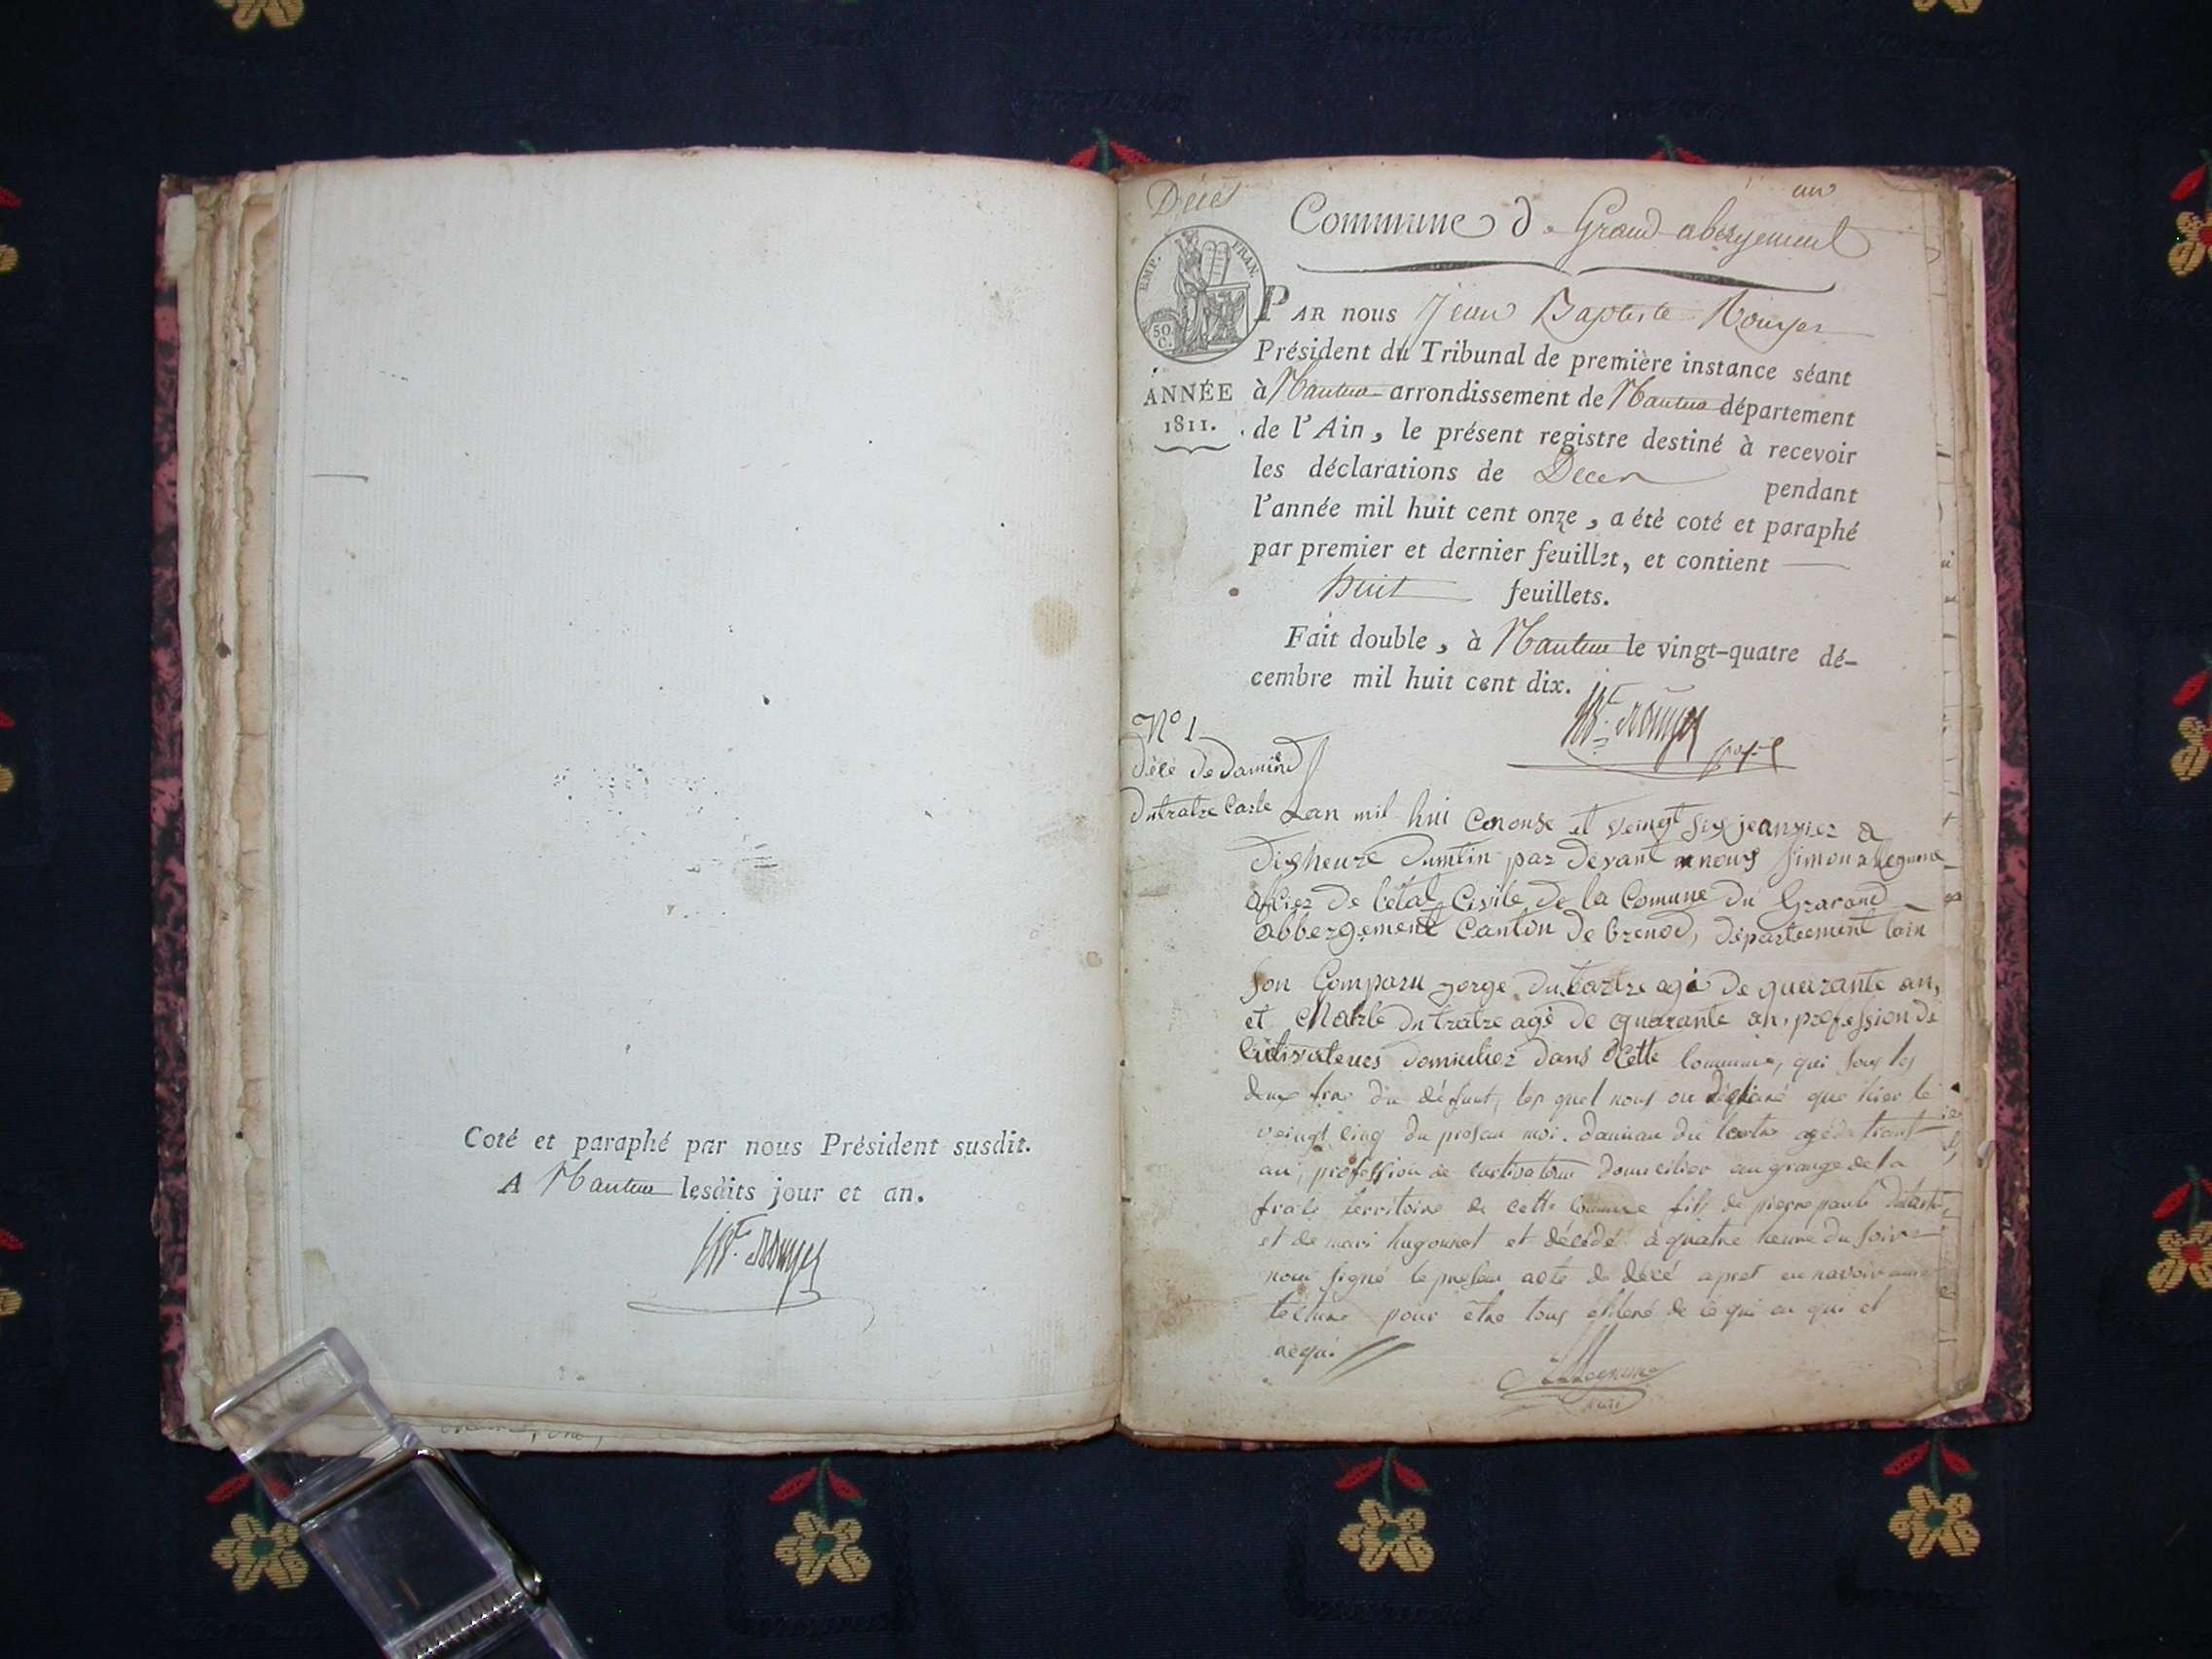 Coté et paraphé par nous Président susdit.
A Nantua lesdits jour et an.
JBte. Rouyer
Décès
un
Commune d. Grand abergement
EMP. FRAN.
50.
C.
ANNÉE
1811.
PAR nous Jean Baptiste Rouyer
Président du Tribunal de première instance séant
à Nantua arrondissement de Nantua département
de l'Ain, le présent registre destiné à recevoir
les déclarations de Décès pendant
l'année mil huit cent onze, a été coté et paraphé
par premier et dernier feuillet, et contient
huit feuillets.
Fait double, à Nantua le vingt-quatre dé-
cembre mil huit cent dix.
JBte. Rouyer
No 1
décé de damien
dutratre Carle
Lan mil hui cenonse et veingt six jeanvier a
dix heure dumtin par devant nous simon
oficier de l'état Civile de la Comune du Grarand
abbergement Canton de brenod, département lain
son Comparu gorge dutartre agé de quarante an,
et Charle dutratre agé de quarante an, profession de
Cultivateurs domicilier dans Cette Commune, qui sous les
deux frere du défunt, les quel nous on déclaré que hier le
veingt cinq du presan moi. damian du tartre agé de
an, profession de cultivateur domicilier au grange de la
territoire de cette Commune fils de pierre paule dutartre
et de mari hugonnet et décédé à quatre heure du soire
nous signé le presan acte de décé apret en navoir
lecture pour etre tous de ce qui en qui et